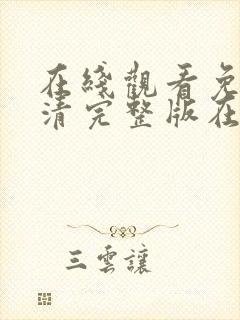 在綫觀看免
清完整版在
三雲讓